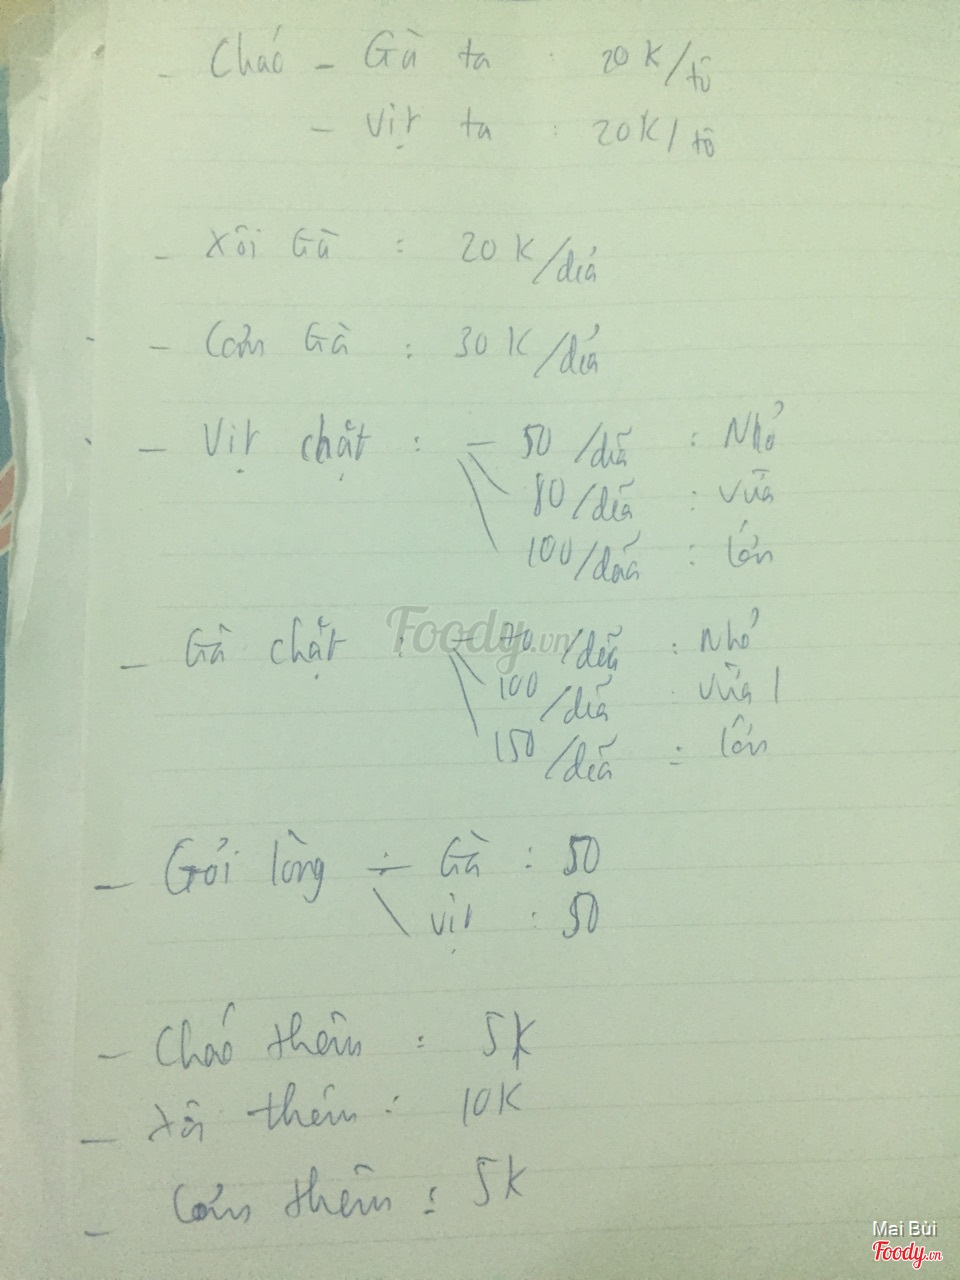 - Cháo - Gà ta : 20K/tô
- Vịt ta : 20K/tô
- Xôi Gà : 20K/dĩa
- Cơm Gà : 30K/dĩa
- Vịt chặt : - 50/dĩa : Nhỏ
80/dĩa : vừa
100/dĩa : lớn
- Gà chặt : - 70/dĩa : Nhỏ
100/dĩa : vừa
150/dĩa : lớn
- Gỏi lòng - Gà : 50
vịt : 50
- Cháo thêm : 5K
- Xôi thêm : 10K
- Cơm thêm : 5K
Foody.vn
Mai Bùi
Foody.vn